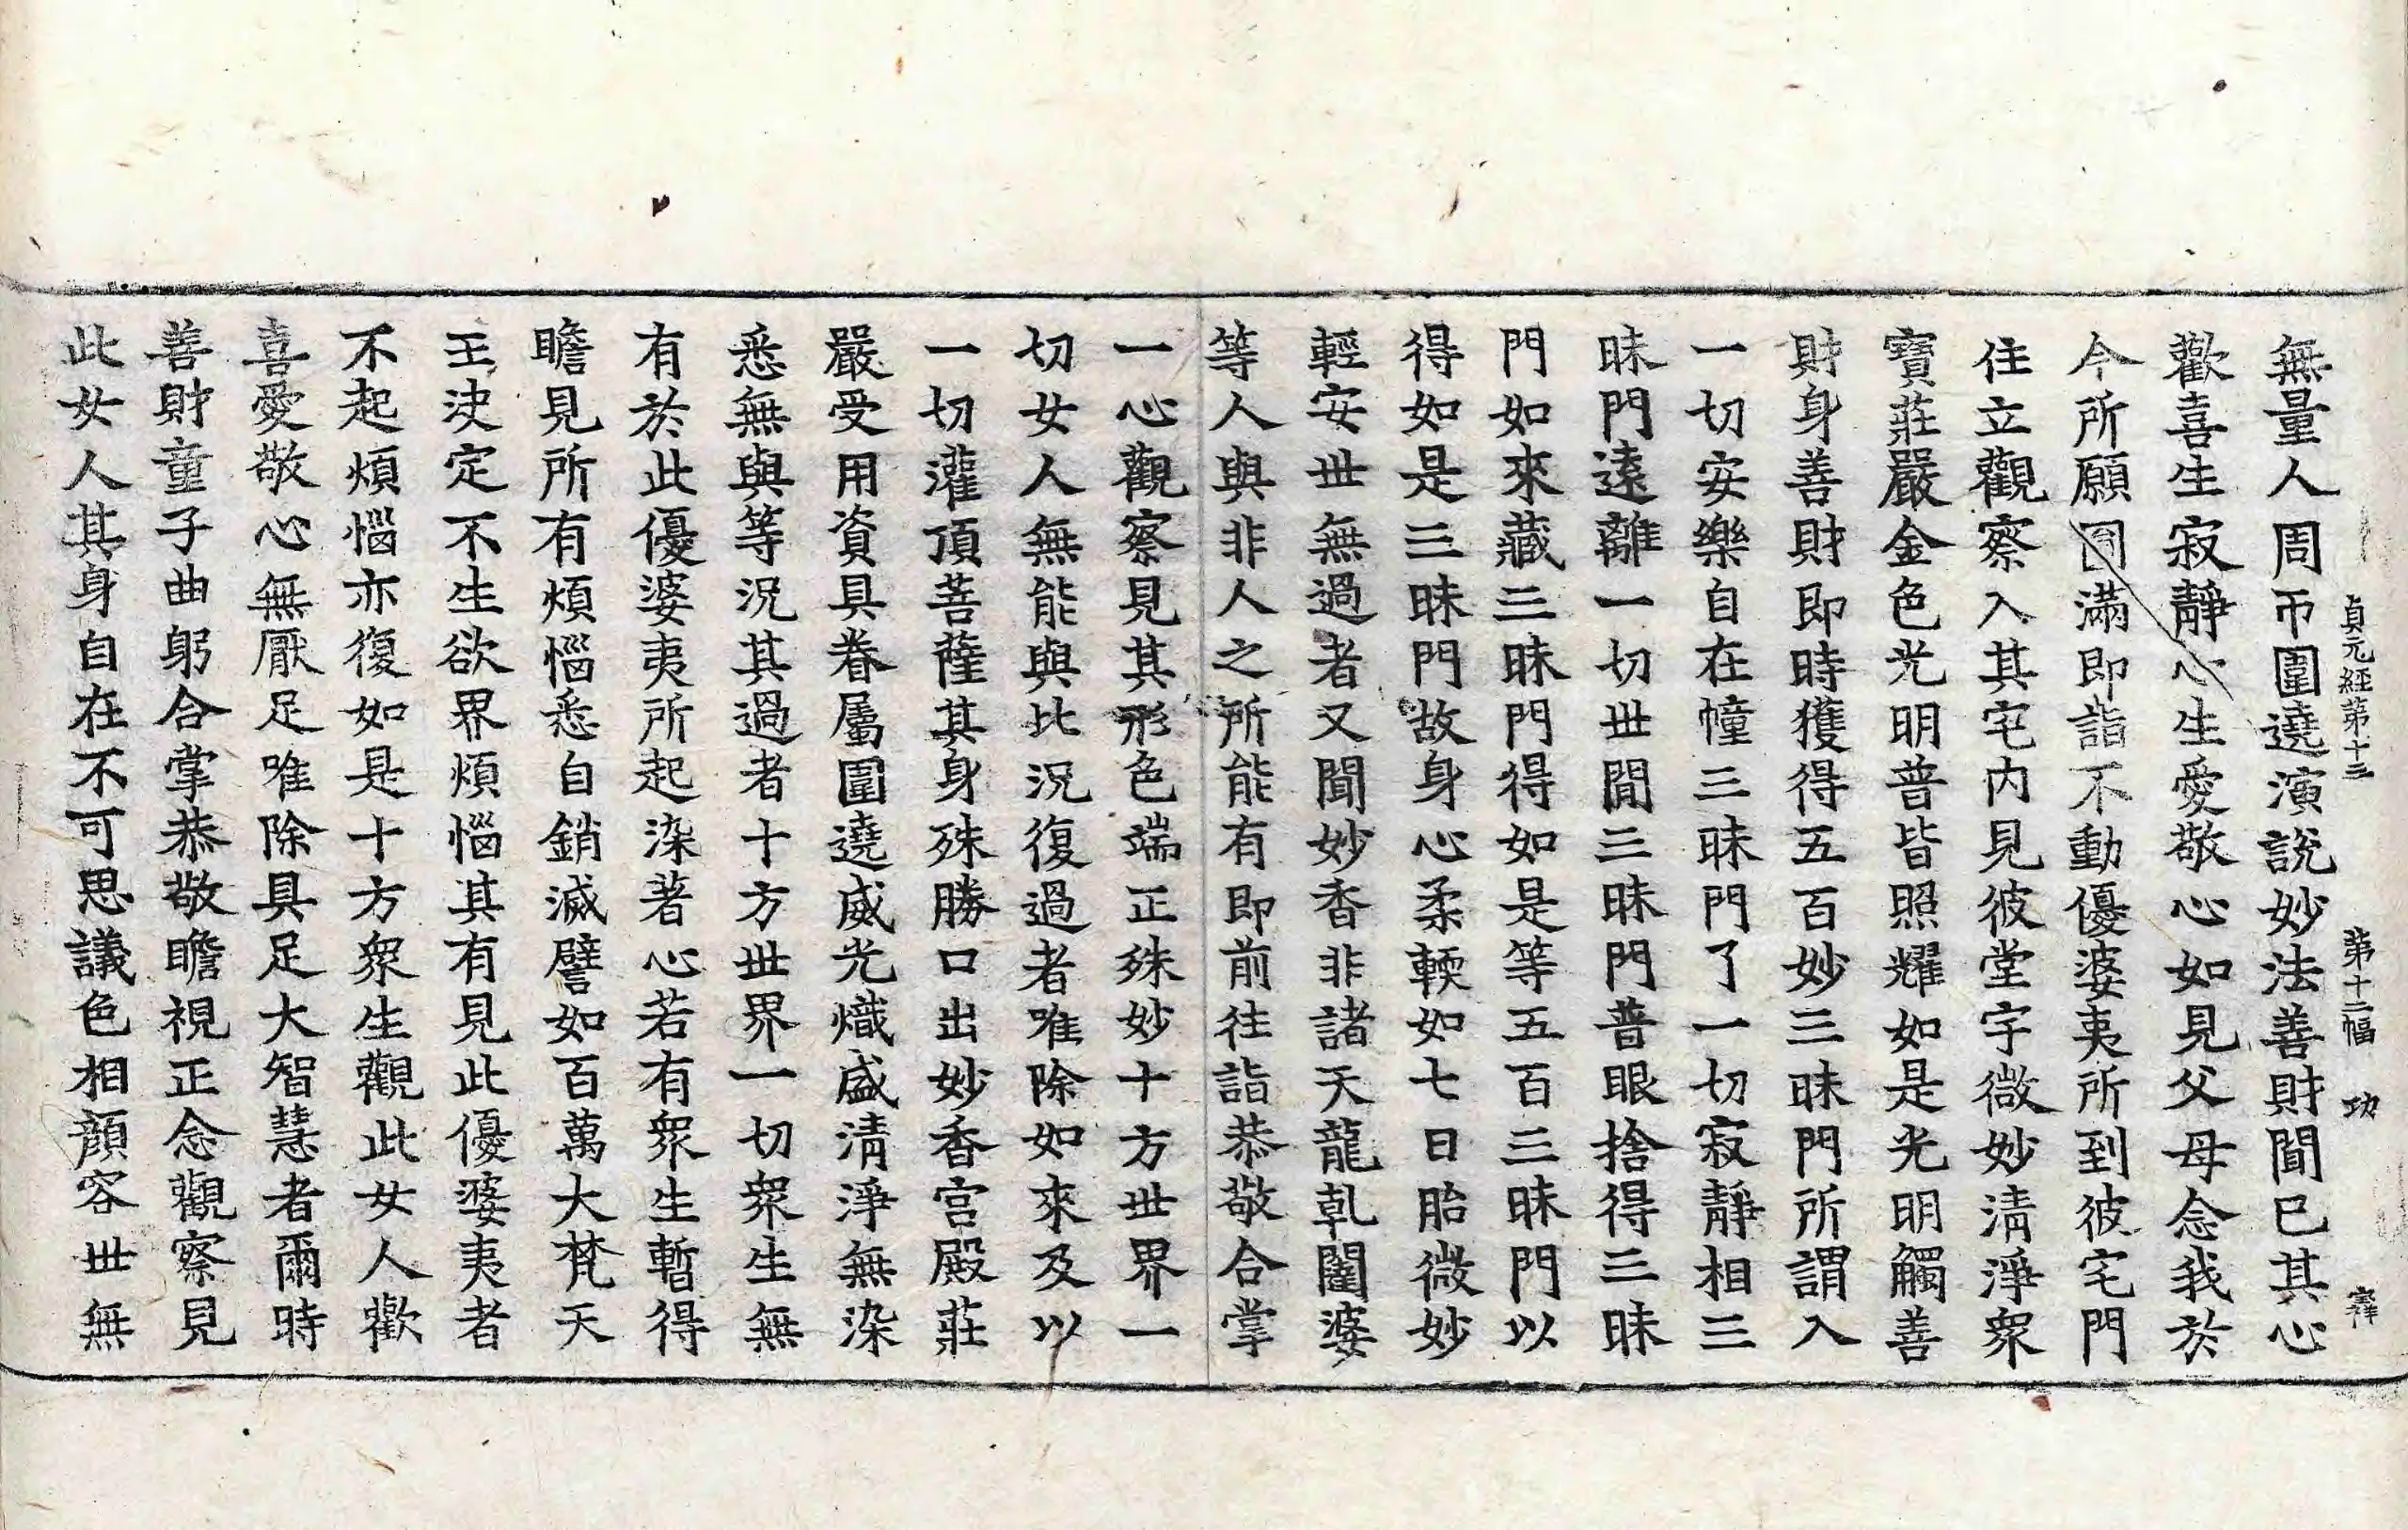 貞元經第十三 第十二幅 功 釋
無量人周帀圍遶演說妙法善財聞已其心
歡喜生寂靜心生愛敬心如見父母念我於
今所願圓滿即詣不動優婆夷所到彼宅門
住立觀察入其宅內見彼堂宇微妙清淨衆
寶莊嚴金色光明普皆照耀如是光明觸善
財身善財即時獲得五百妙三昧門所謂入
一切安樂自在幢三昧門了一切寂靜相三
昧門遠離一切世間三昧門普眼捨得三昧
門如來藏三昧門得如是等五百三昧門以
得如是三昧門故身心柔輭如七日胎微妙
輕安世無過者又聞妙香非諸天龍乹闥婆
等人與非人之所能有即前往詣恭敬合掌
一心觀察見其形色端正殊妙十方世界一
切女人無能與比況復過者唯除如來及以
一切灌頂菩薩其身殊勝口出妙香宮殿莊
嚴受用資具眷屬圍遶威光熾盛清淨無染
悉無與等況其過者十方世界一切衆生無
有於此優婆夷所起染著心若有衆生暫得
瞻見所有煩惱悉自銷滅譬如百萬大梵天
王決定不生欲界煩惱其有見此優婆夷者
不起煩惱亦復如是十方衆生觀此女人歡
喜愛敬心無厭足唯除具足大智慧者爾時
善財童子曲躬合掌恭敬瞻視正念觀察見
此女人其身自在不可思議色相顏容世無